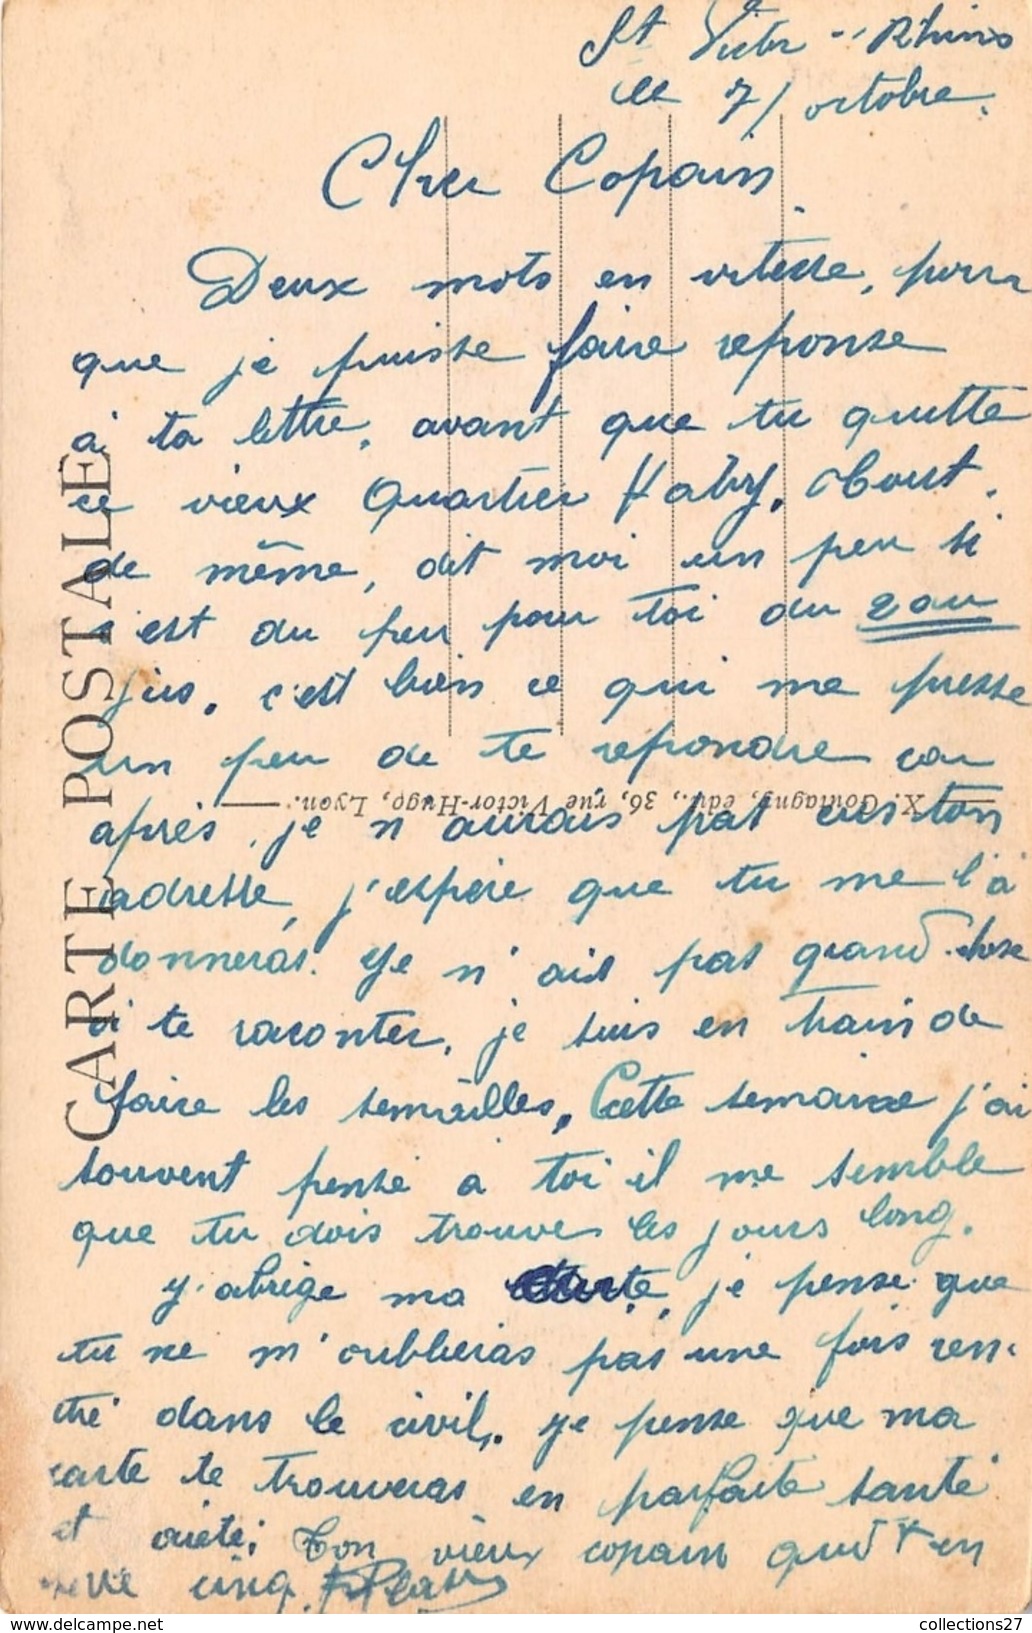 St Victor s/ Rhins
le 7/ octobre.
Cher Copain.
Deux mots en vitesse, pour
que je puisse faire reponse
à ta lettre, avant que tu quitte
ce vieux Quartier Bout
de même, dit moi un peu si
c'est du peu pour toi du
jus. c'est bien ce qui me presse
un peu de te repondre car
après, je n'aurais pas eus ton
adresse, j'espère que tu me l'a
donneras. Je n'ais pas grand chose
à te raconter, je suis en train de
faire les semailles, Cette semaine j'ai
souvent pensé à toi il me semble
que tu dois trouver les jours long.
J'abrège ma carte, je pense que
tu ne m'oublieras pas une fois ren-
tré dans le civil. Je pense que ma
carte te trouveras en parfaite santé
et Ton vieux copain qui t'en
serre cinq.
CARTE POSTALE
X. Goutagny, édit., 36, rue Victor-Hugo, Lyon.
collections27